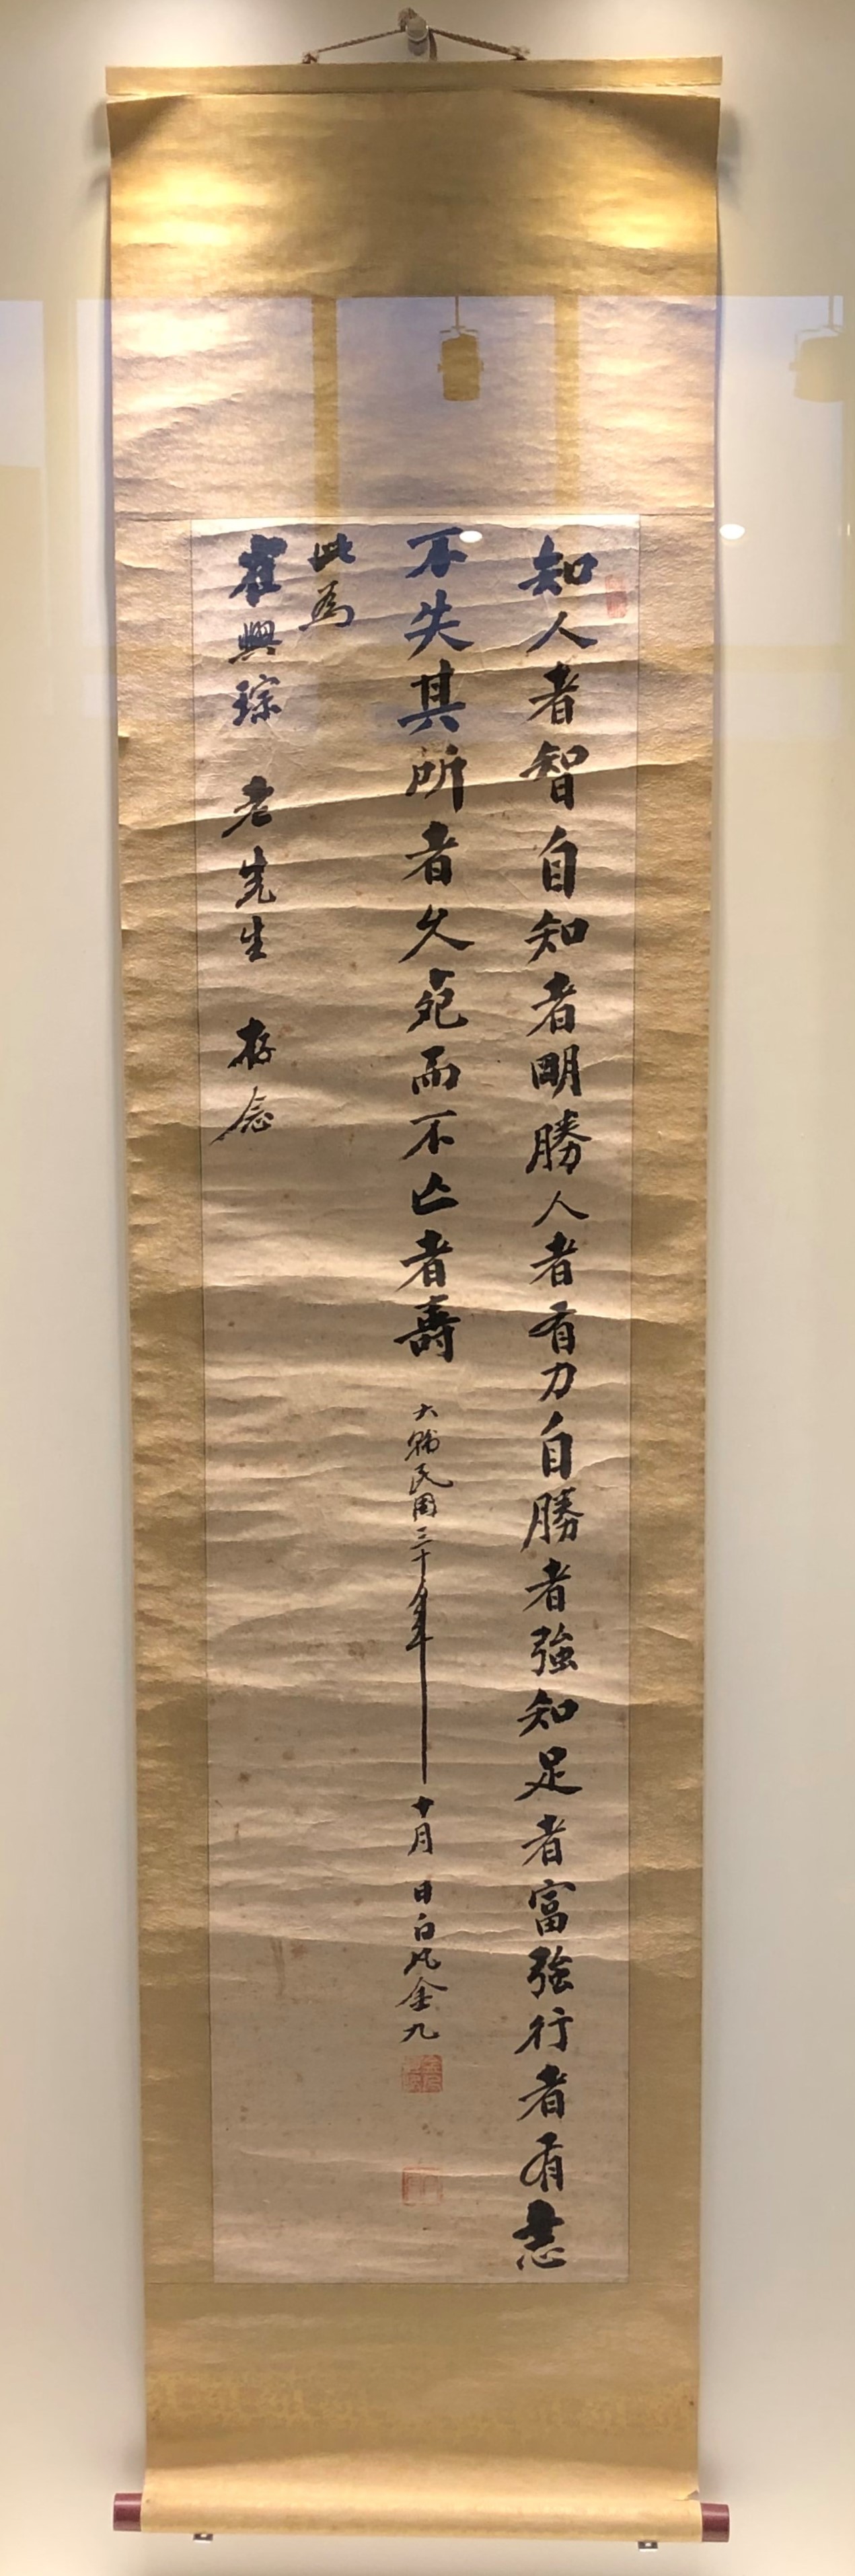 知人者智自知者明勝人者有力自勝者強知足者富強行者有志
不失其所者久死而不亡者壽 大韓民国三十年十月 日白凡金九
此為
崔興琮 老先生 存念